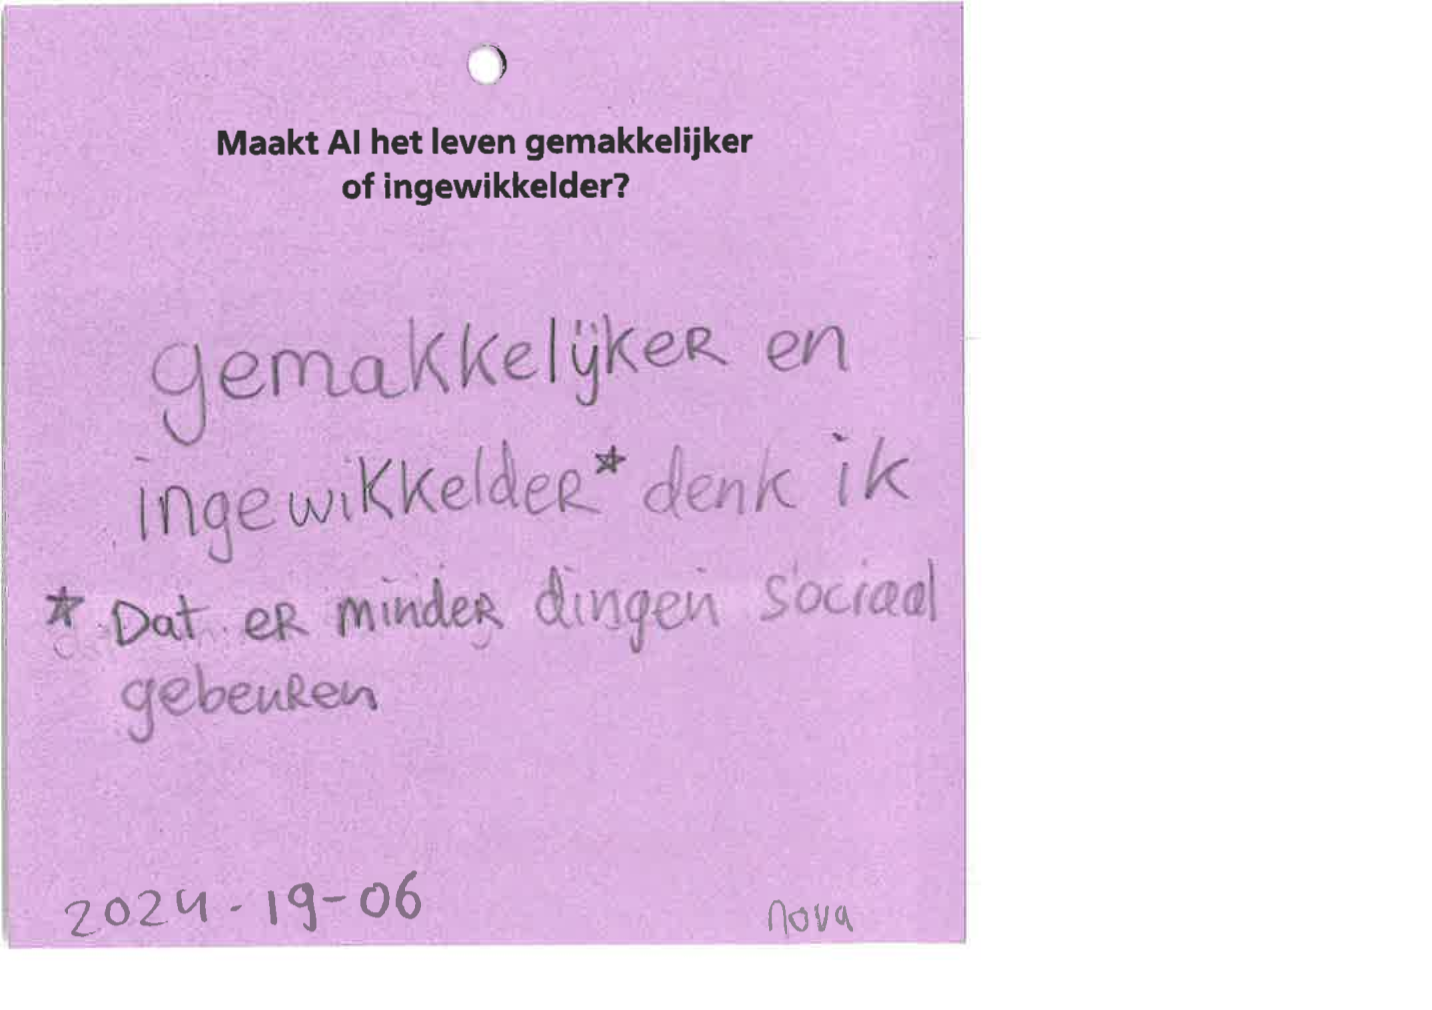 Maakt AI het leven gemakkelijker
of ingewikkelder?
gemakkelijker en
ingewikkelder* denk ik
* Dat er minder dingen sociaal
gebeuren
2024-19-06
nova